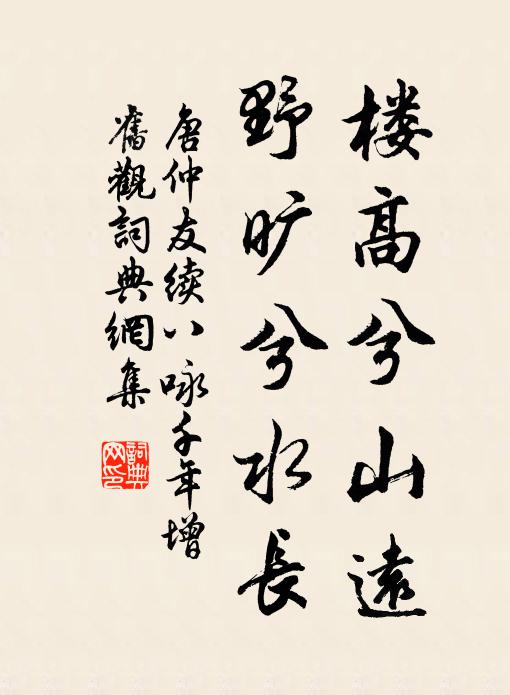 楼高兮山遠
野旷兮水長
唐仲友续八咏千年增
舊觀詞典網集
詞典网印